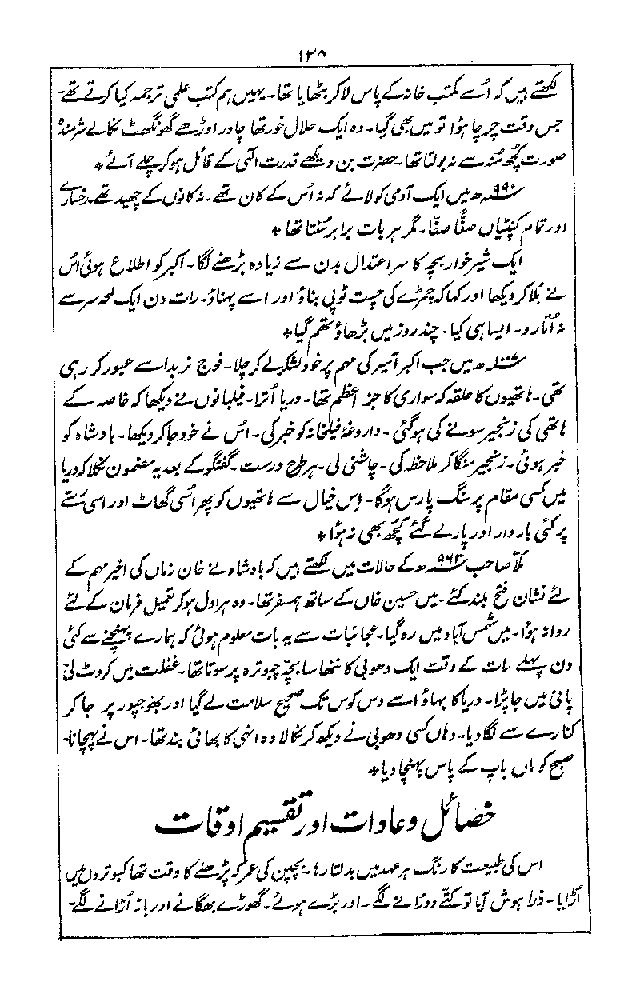 ۱۳۸
لکھتے ہیں کہ اُسے مکتب خانہ کے پاس لاکر بٹھایا تھا۔ یہیں ہم کتب علمی ترجمہ کیا کرتے تھے۔
جس وقت چرچا ہؤا تو میں بھی گیا۔ وہ ایک حلال خور تھا چادر اوڑھے گھونگھٹ نکالے شرمندہ
صورت کچھ مُنہ سے نہ بولتا تھا۔ حضرت بن دیکھے قدرت الٰہی کے قائل ہوکر چلے آئے ٭
۹۹۰ھ میں ایک آدمی کو لائے کہ نہ اُس کے کان تھے۔ نہ کانوں کے چھید تھے۔ رخسارے
اور تمام کنپٹیاں صفّا صفّا۔ مگر ہر بات برابر سنتا تھا ٭
ایک شیرخوار بچہ کا سر اعتدال بدن سے زیادہ بڑھنے لگا۔ اکبر کو اطلاع ہوئی اُس
نے بلاکر دیکھا اور کہا کہ چمڑے کی چست ٹوپی بناؤ اور اسے پہناؤ۔ رات دن ایک لمحہ سر سے
نہ اُتارو۔ ایسا ہی کیا۔ چند روز میں بڑھاؤ تھم گیا ٭
ھ میں جب اکبر آسیر کی مہم پر خود لشکر لے کر چلا۔ فوج نربدا سے عبور کر رہی
تھی۔ ہاتھیوں کا حلقہ کہ سواری کا جزِ اعظم تھا۔ دریا اُترا۔ فیلبانوں نے دیکھا کہ خاصہ کے
ہاتھی کی زنجیر سونے کی ہوگئی۔ داروغۂ فیلخانہ کو خبر کی۔ اُس نے خود جاکر دیکھا۔ بادشاہ کو
خبر ہوئی۔ زنجیر منگاکر ملاحظہ کی۔ چاشنی لی۔ ہر طرح درست۔ گفتگو کے بعد یہ مضمون نکلا کہ دریا
میں کسی مقام پر سنگ پارس ہوگا۔ اِس خیال سے ہاتھیوں کو پھر اُسی گھاٹ اور اسی رستے
پر کئی بار وار اور پار لے گئے کچھ بھی نہ ہؤا ٭
ملّا صاحب ۹۶۳ھ کے حالات میں لکھتے ہیں کہ بادشاہ نے خان زماں کی اخیر مہم کے
لئے نشان فتح بلند کئے۔ میں حسین خاں کے ساتھ ہمسفر تھا۔ وہ ہراول ہوکر تعمیل فرمان کے لئے
روانہ ہؤا۔ میں شمس آباد میں رہ گیا۔ عجائبات سے یہ بات معلوم ہوئی کہ ہمارے پہنچنے سے کئی
دن پہلے رات کے وقت ایک دھوبی کا ننھا سا بچہ چبوترہ پر سوتا تھا۔ غفلت میں کروٹ لی
پانی میں جا پڑا۔ دریا کا بہاؤ اسے دس کوس تک صحیح سلامت لے گیا اور بھوجپور پر جا کر
کنارے سے لگا دیا۔ وہاں کسی دھوبی نے دیکھ کر نکالا وہ انہی کا بھائی بند تھا۔ اس نے پہچانا۔
صبح کو ماں باپ کے پاس پہنچا دیا ٭
خصائل و عادات اور تقسیم اوقات
اس کی طبیعت کا رنگ ہر عہد میں بدلتا رہا۔ بچپن کی عمر کہ پڑھنے کا وقت تھا کبوتروں میں
اُڑایا۔ ذرا ہوش آیا تو کتّے دوڑانے لگے۔ اور بڑے ہوئے۔ گھوڑے بھگانے اور باز اُڑانے لگے۔